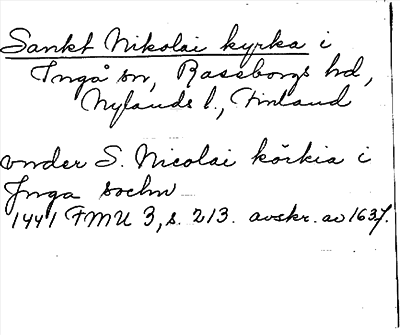 Sankt Nikolai kyrka i
Ingå sn, Raseborgs hd,
Nylands l., Finland
vnder S. Nicolai körkia i
Jnga sochn
1441 FMU 3, s. 213. avskr. av 1637.